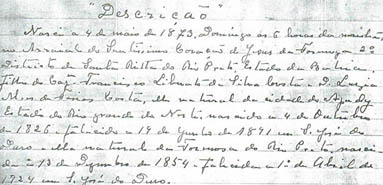 "Descrição"
Nasci a 4 de maio de 1873, Domingo as 6 horas da manhã,
no Arraial do Santissimo Coração de Jesus da Formosa 2º
Districto de Santa Ritta do Rio Preto, Estado da Bahia.
filho de Capº Francisco Liberato da Silva Costa e D. Luzia
M. de Costa, natural da cidade do
Estado do Rio grande do Norte, nascido a 4 de Outubro
de 1826 - falicido a 19 de Junho de 1891 em S. José do
Duro - Ella natural da Formosa do Rio Preto, nasci
da a 13 de Dezembro de 1854 - falicida a 1º de Abril de
1924 em S. José do Duro.